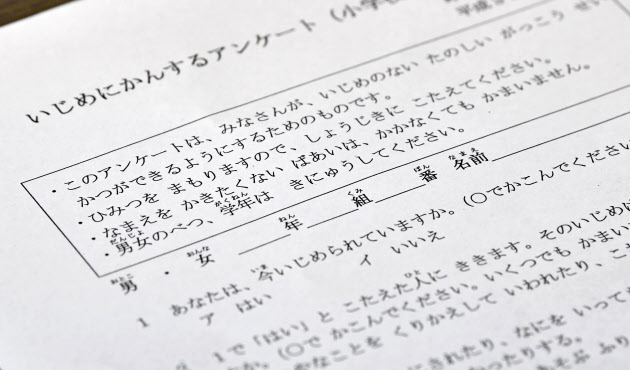 いじめにかんするアンケート（小学
平成
・このアンケートは、みなさんが、いじめのない たのしい がっこう せい
かつができるようにするためのものです。
・ひみつを まもりますので、しょうじきに こたえてください。
・なまえを かきたくない ばあいは、かかなくても かまいません。
・男女のべつ、学年は きにゅうしてください。
男 ・ 女 ＿＿年＿＿組＿＿番 名前＿＿
1 あなたは、今いじめられていますか。（○でかこんでください
ア はい イ いいえ
1で「はい」と こたえた人に ききます。そのいじめに
か。（○で かこんでください。いくつでも かまい
なことを くりかえして いわれたり、こ
されたり、なにを いって
たりする。
あそぶ ふり